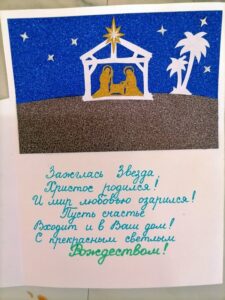 Зажглась Звезда,
Христос родился!
И мир любовью озарился!
Пусть счастье
Входит и в Ваш дом!
С прекрасным светлым
Рождеством!